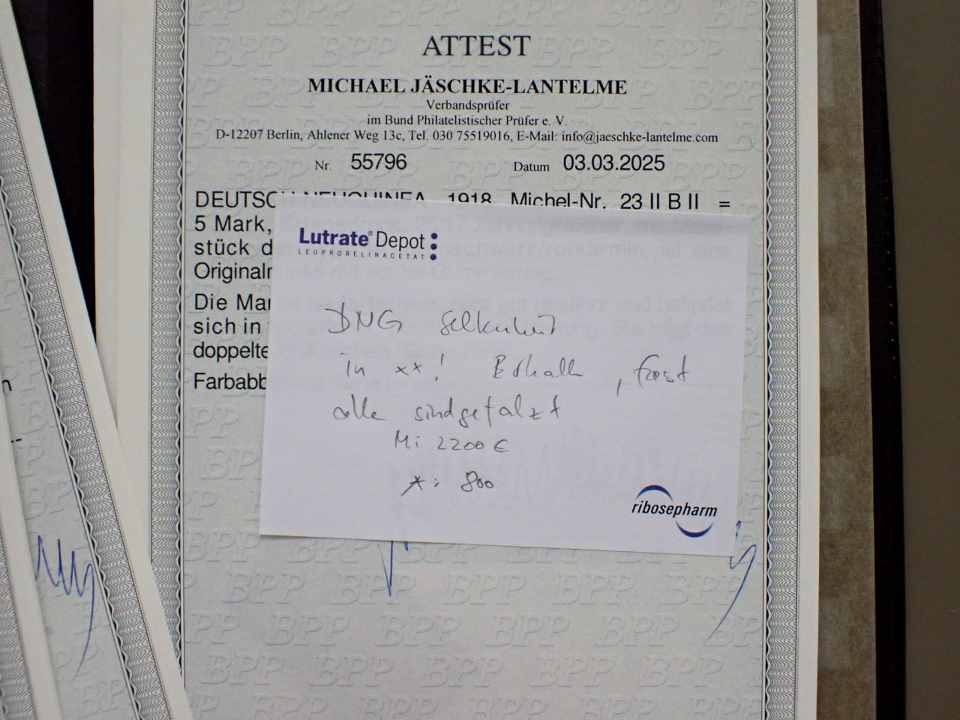 ATTEST
MICHAEL JÄSCHKE-LANTELME
Verbandsprüfer
im Bund Philatelistischer Prüfer e. V.
D-12207 Berlin, Ahlener Weg 13c, Tel. 030 75519016, E-Mail: info@jaeschke-lantelme.com
Nr. 55796 Datum 03.03.2025
DEUTSCH-NEUGUINEA 1918 Michel-Nr. 23 II B II =
5 Mark,
stück d
Originalr
Die Mar
sich in
doppelte
Farbabb
Lutrate® Depot
LEUPRORELINACETAT
DNG Seltenheit
in xx! Erhalt, fast
alle sind gefalzt
Mi 2200 €
*: 800
ribosepharm